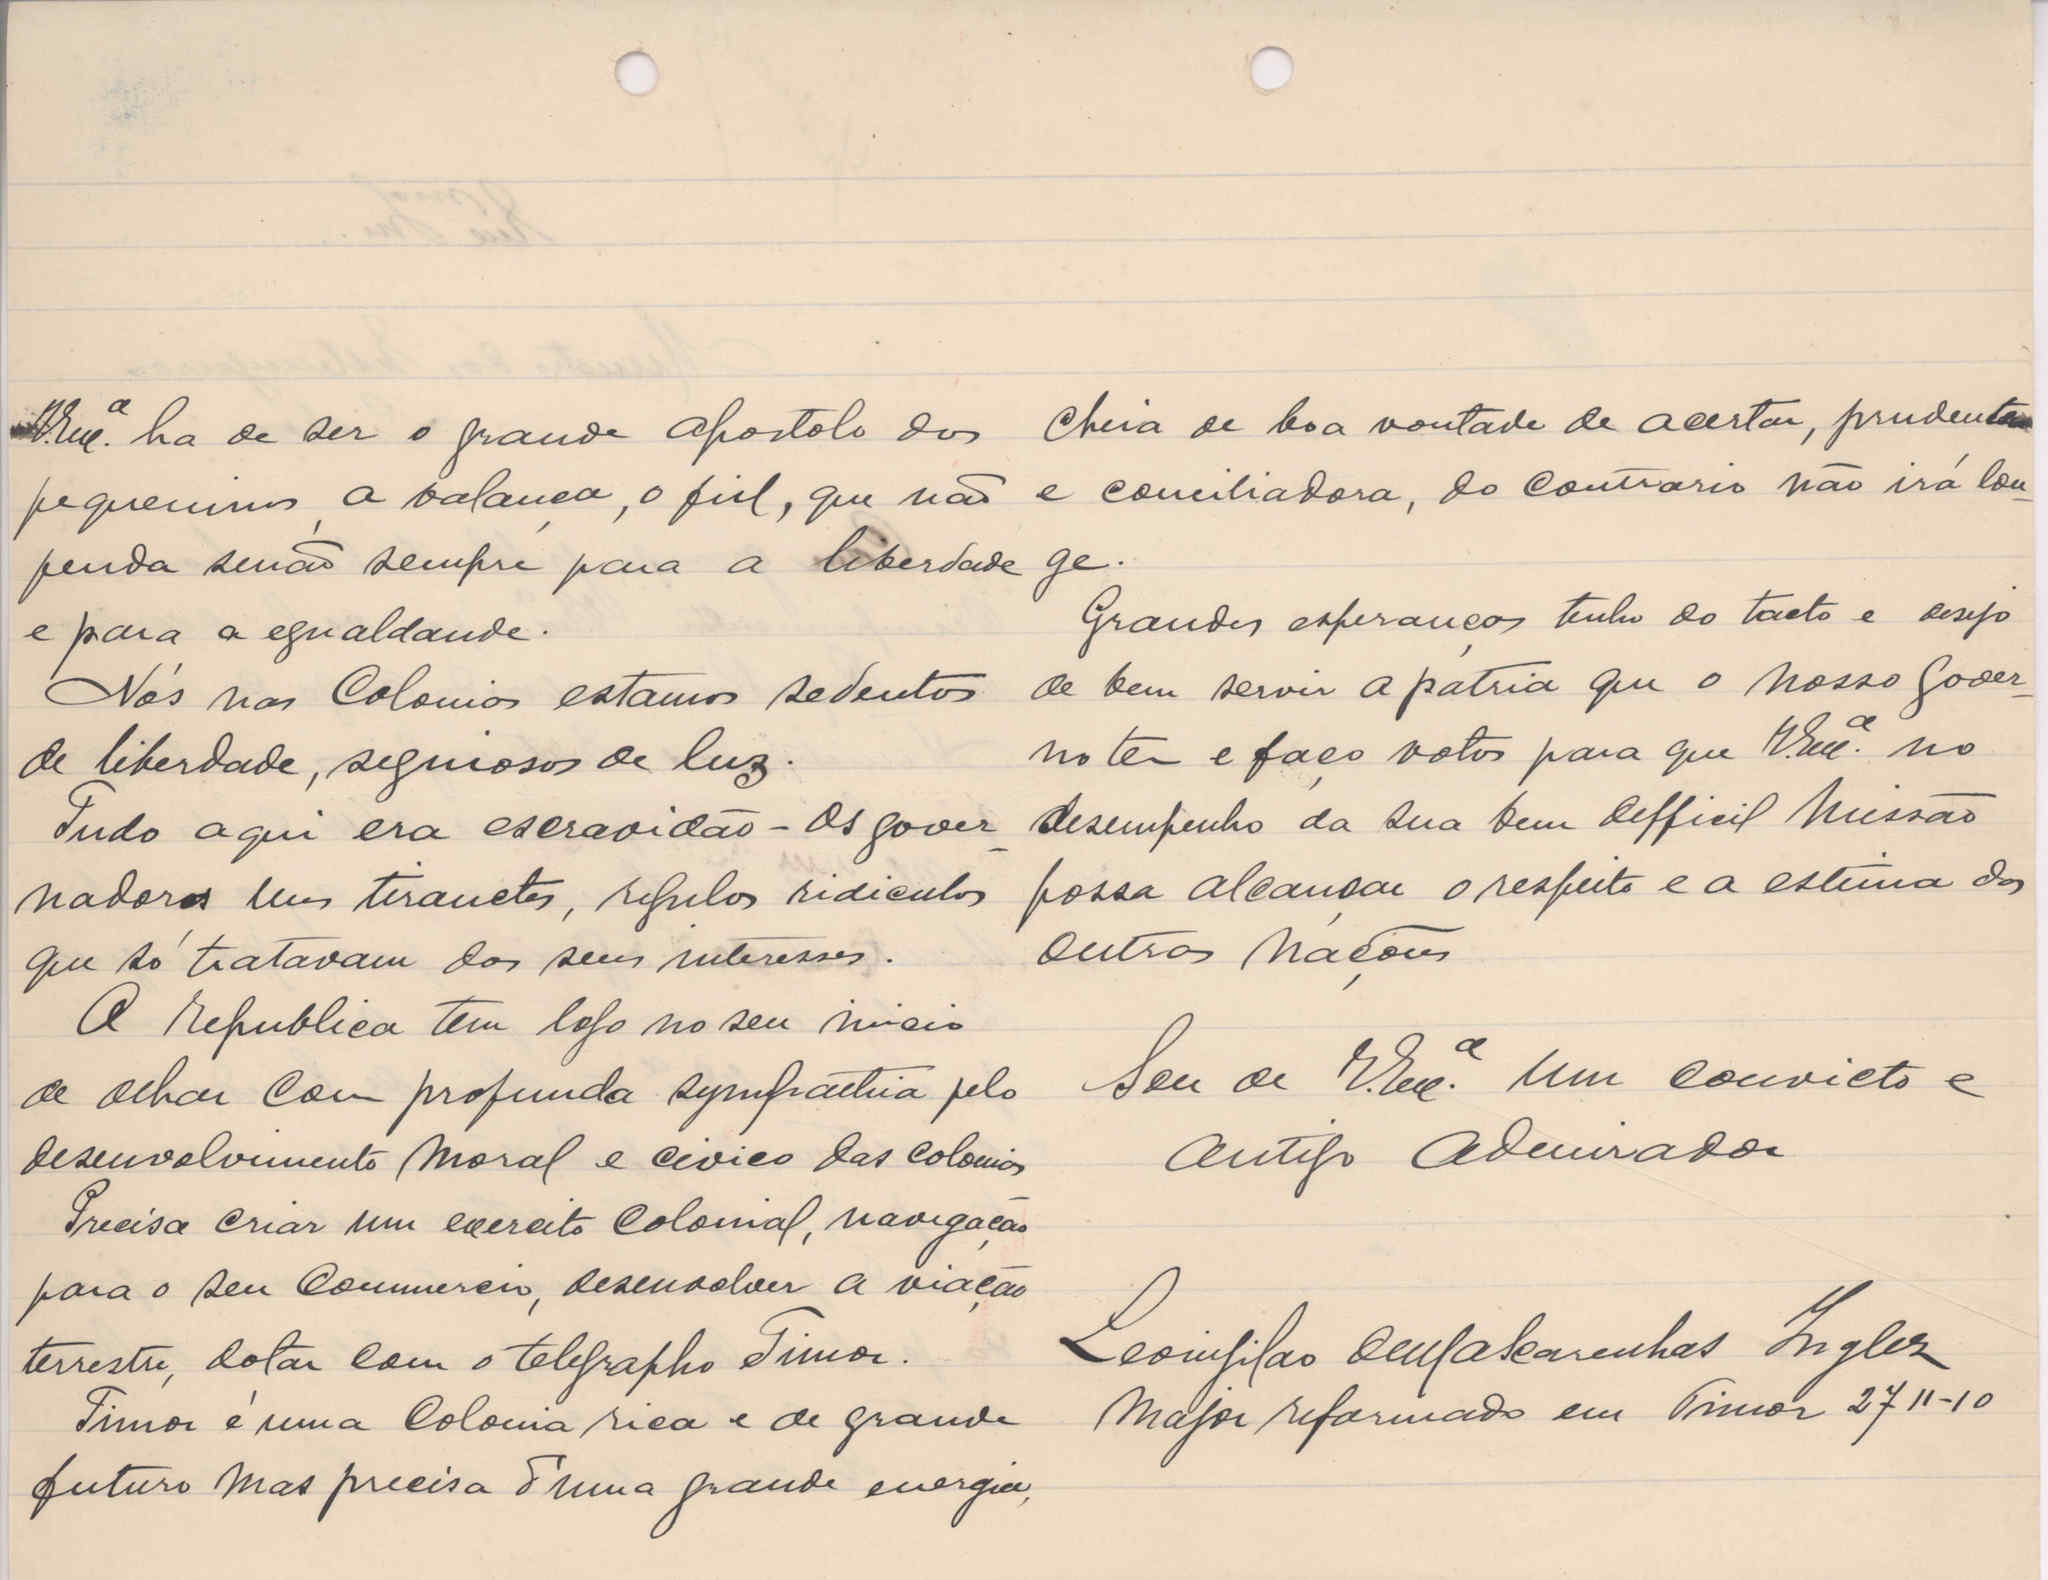 V. Exª. ha de ser o grande apostolo dos
pequeninos, a balança, o fiel, que não
penda senão sempre para a liberdade
e para a egualdande.
Nós nas Colonias estamos sedentos
de liberdade, sequiosos de luz.
Tudo aqui era escravidão - Os gover-
nadores uns tiranetes, regulos ridiculos
que só tratavam dos seus interesses.
A Republica tem logo no seu inicio
de olhar com profunda sympathia pelo
desenvolvimento moral e civico das colonias
Precisa criar um exercito Colonial, navegação
para o seu Commercio, desenvolver a viação
terrestre, dotar com o telegrapho Timor.
Timor é uma Colonia rica e de grande
futuro mas precisa d'uma grande energia,
cheia de boa vontade de acertar, prudente
e conciliadora, do contrario não irá lon-
ge.
Grandes esperanças tenho do tacto e desejo
de bem servir a pátria que o nosso Gover-
no tem e faço votos para que V. Exª. no
desempenho da sua bem defficil missão
possa alcançar o respeito e a estima das
outras nações
Seu de V. Exª. um convicto e
antigo admirador
Mascarenhas Inglez
Major reformado em Timor 27 11-10